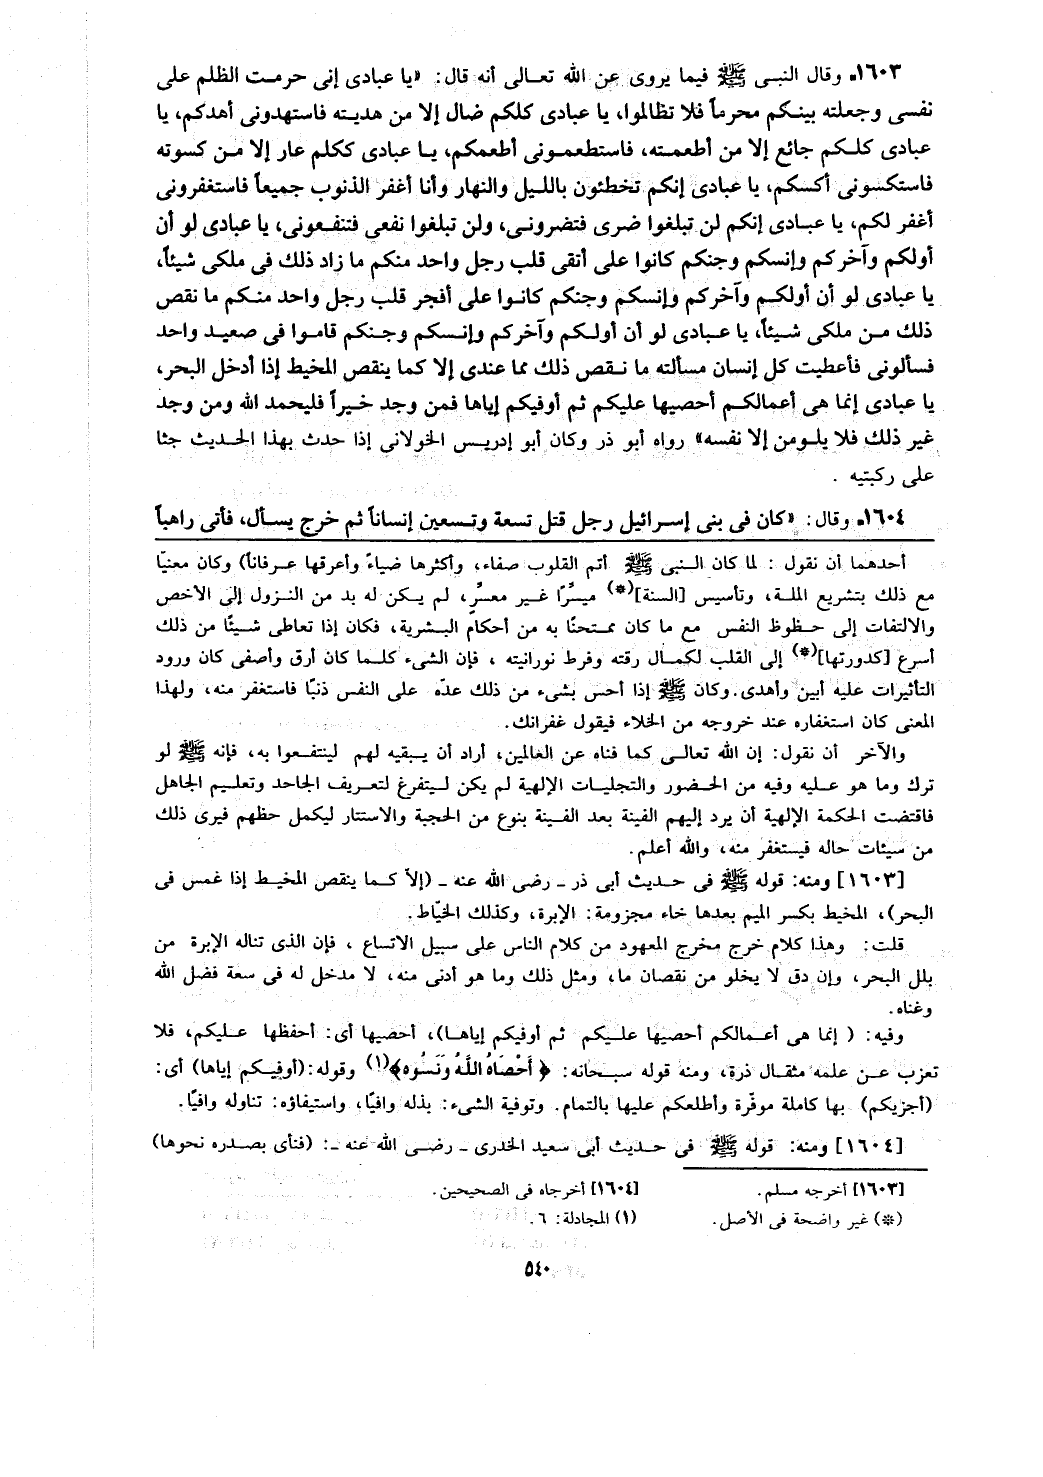 ١٦٠٣- وقال النبى ﷺ فيما يروى عن الله تعالى أنه قال: «يا عبادى إنى حرمت الظلم على
نفسى وجعلته بينكم محرماً فلا تظالموا، يا عبادى كلكم ضال إلا من هديته فاستهدونى أهدكم، يا
عبادى كلكم جائع إلا من أطعمته، فاستطعمونى أطعمكم، يا عبادى ككلم عار إلا من كسوته
فاستكسونى أكسكم، يا عبادى إنكم تخطئون بالليل والنهار وأنا أغفر الذنوب جميعاً فاستغفرونى
أغفر لكم، يا عبادى إنكم لن تبلغوا ضرى فتضرونى، ولن تبلغوا نفعى فتنفعونى، يا عبادى لو أن
أولكم وآخركم وإنسكم وجنكم كانوا على أتقى قلب رجل واحد منكم ما زاد ذلك فى ملكى شيئاً،
يا عبادى لو أن أولكم وآخركم وإنسكم وجنكم كانوا على أفجر قلب رجل واحد منكم ما نقص
ذلك من ملكى شيئاً، يا عبادى لو أن أولكم وآخركم وإنسكم وجنكم قاموا فى صعيد واحد
فسألونى فأعطيت كل إنسان مسألته ما نقص ذلك مما عندى إلا كما ينقص المخيط إذا أدخل البحر،
يا عبادى إنما هى أعمالكم أحصيها عليكم ثم أوفيكم إياها فمن وجد خيراً فليحمد الله ومن وجد
غير ذلك فلا يلومن إلا نفسه» رواه أبو ذر وكان أبو إدريس الخولانى إذا حدث بهذا الحديث جثا
على ركبتيه .
١٦٠٤- وقال: «كان فى بنى إسرائيل رجل قتل تسعة وتسعين إنساناً ثم خرج يسأل، فأتى راهباً
أحدهما أن نقول : لما كان النبى ﷺ أتم القلوب صفاء، وأكثرها ضياءً وأعرقها عرفاناً) وكان معنيّا
مع ذلك بتشريع الملة، وتأسيس [السنة](*) ميسِّرًا غير معسِّرٍ، لم يكن له بد من النزول إلى الأخص
والالتفات إلى حظوظ النفس مع ما كان ممتحنًا به من أحكام البشرية، فكان إذا تعاطى شيئًا من ذلك
أسرع [كدورتها](*) إلى القلب لكمال رقته وفرط نورانيته ، فإن الشىء كلما كان أرق وأصفى كان ورود
التأثيرات عليه أبين وأهدى. وكان ﷺ إذا أحس بشىء من ذلك عدّه على النفس ذنبًا فاستغفر منه، ولهذا
المعنى كان استغفاره عند خروجه من الخلاء فيقول غفرانك.
والآخر أن نقول: إن الله تعالى كما فناه عن العالمين، أراد أن يبقيه لهم لينتفعوا به، فإنه ﷺ لو
ترك وما هو عليه وفيه من الحضور والتجليات الإلهية لم يكن ليتفرغ لتعريف الجاحد وتعليم الجاهل
فاقتضت الحكمة الإلهية أن يرد إليهم الفينة بعد الفينة بنوع من الحجبة والاستتار ليكمل حظهم فيرى ذلك
من سيئات حاله فيستغفر منه، والله أعلم.
[١٦٠٣] ومنه: قوله ﷺ فى حديث أبى ذر ـ رضى الله عنه ـ (إلاّ كما ينقص المخيط إذا غمس فى
البحر)، المخيط بكسر الميم بعدها خاء مجزومة: الإبرة، وكذلك الخيّاط.
قلت: وهذا كلام خرج مخرج المعهود من كلام الناس على سبيل الاتساع ، فإن الذى تناله الإبرة من
بلل البحر، وإن دق لا يخلو من نقصان ما، ومثل ذلك وما هو أدنى منه، لا مدخل له فى سعة فضل الله
وغناه.
وفيه: ( إنما هى أعمالكم أحصيها عليكم ثم أوفيكم إياها)، أحصيها أى: أحفظها عليكم، فلا
تعزب عن علمه مثقال ذرة، ومنه قوله سبحانه: ﴿ أَحْصَاهُ اللَّهُ وَنَسُوهُ﴾(١) وقوله: (أوفيكم إياها) أى:
(أجزيكم) بها كاملة موفّرة وأطلعكم عليها بالتمام. وتوفية الشىء: بذله وافيًا، واستيفاؤه: تناوله وافيًا.
[١٦٠٤] ومنه: قوله ﷺ فى حديث أبى سعيد الخدرى ـ رضى الله عنه ـ: (فنأى بصدره نحوها)
[١٦٠٣] أخرجه مسلم. [١٦٠٤] أخرجاه فى الصحيحين.
(*) غير واضحة فى الأصل. (١) المجادلة: ٦.
٥٤٠